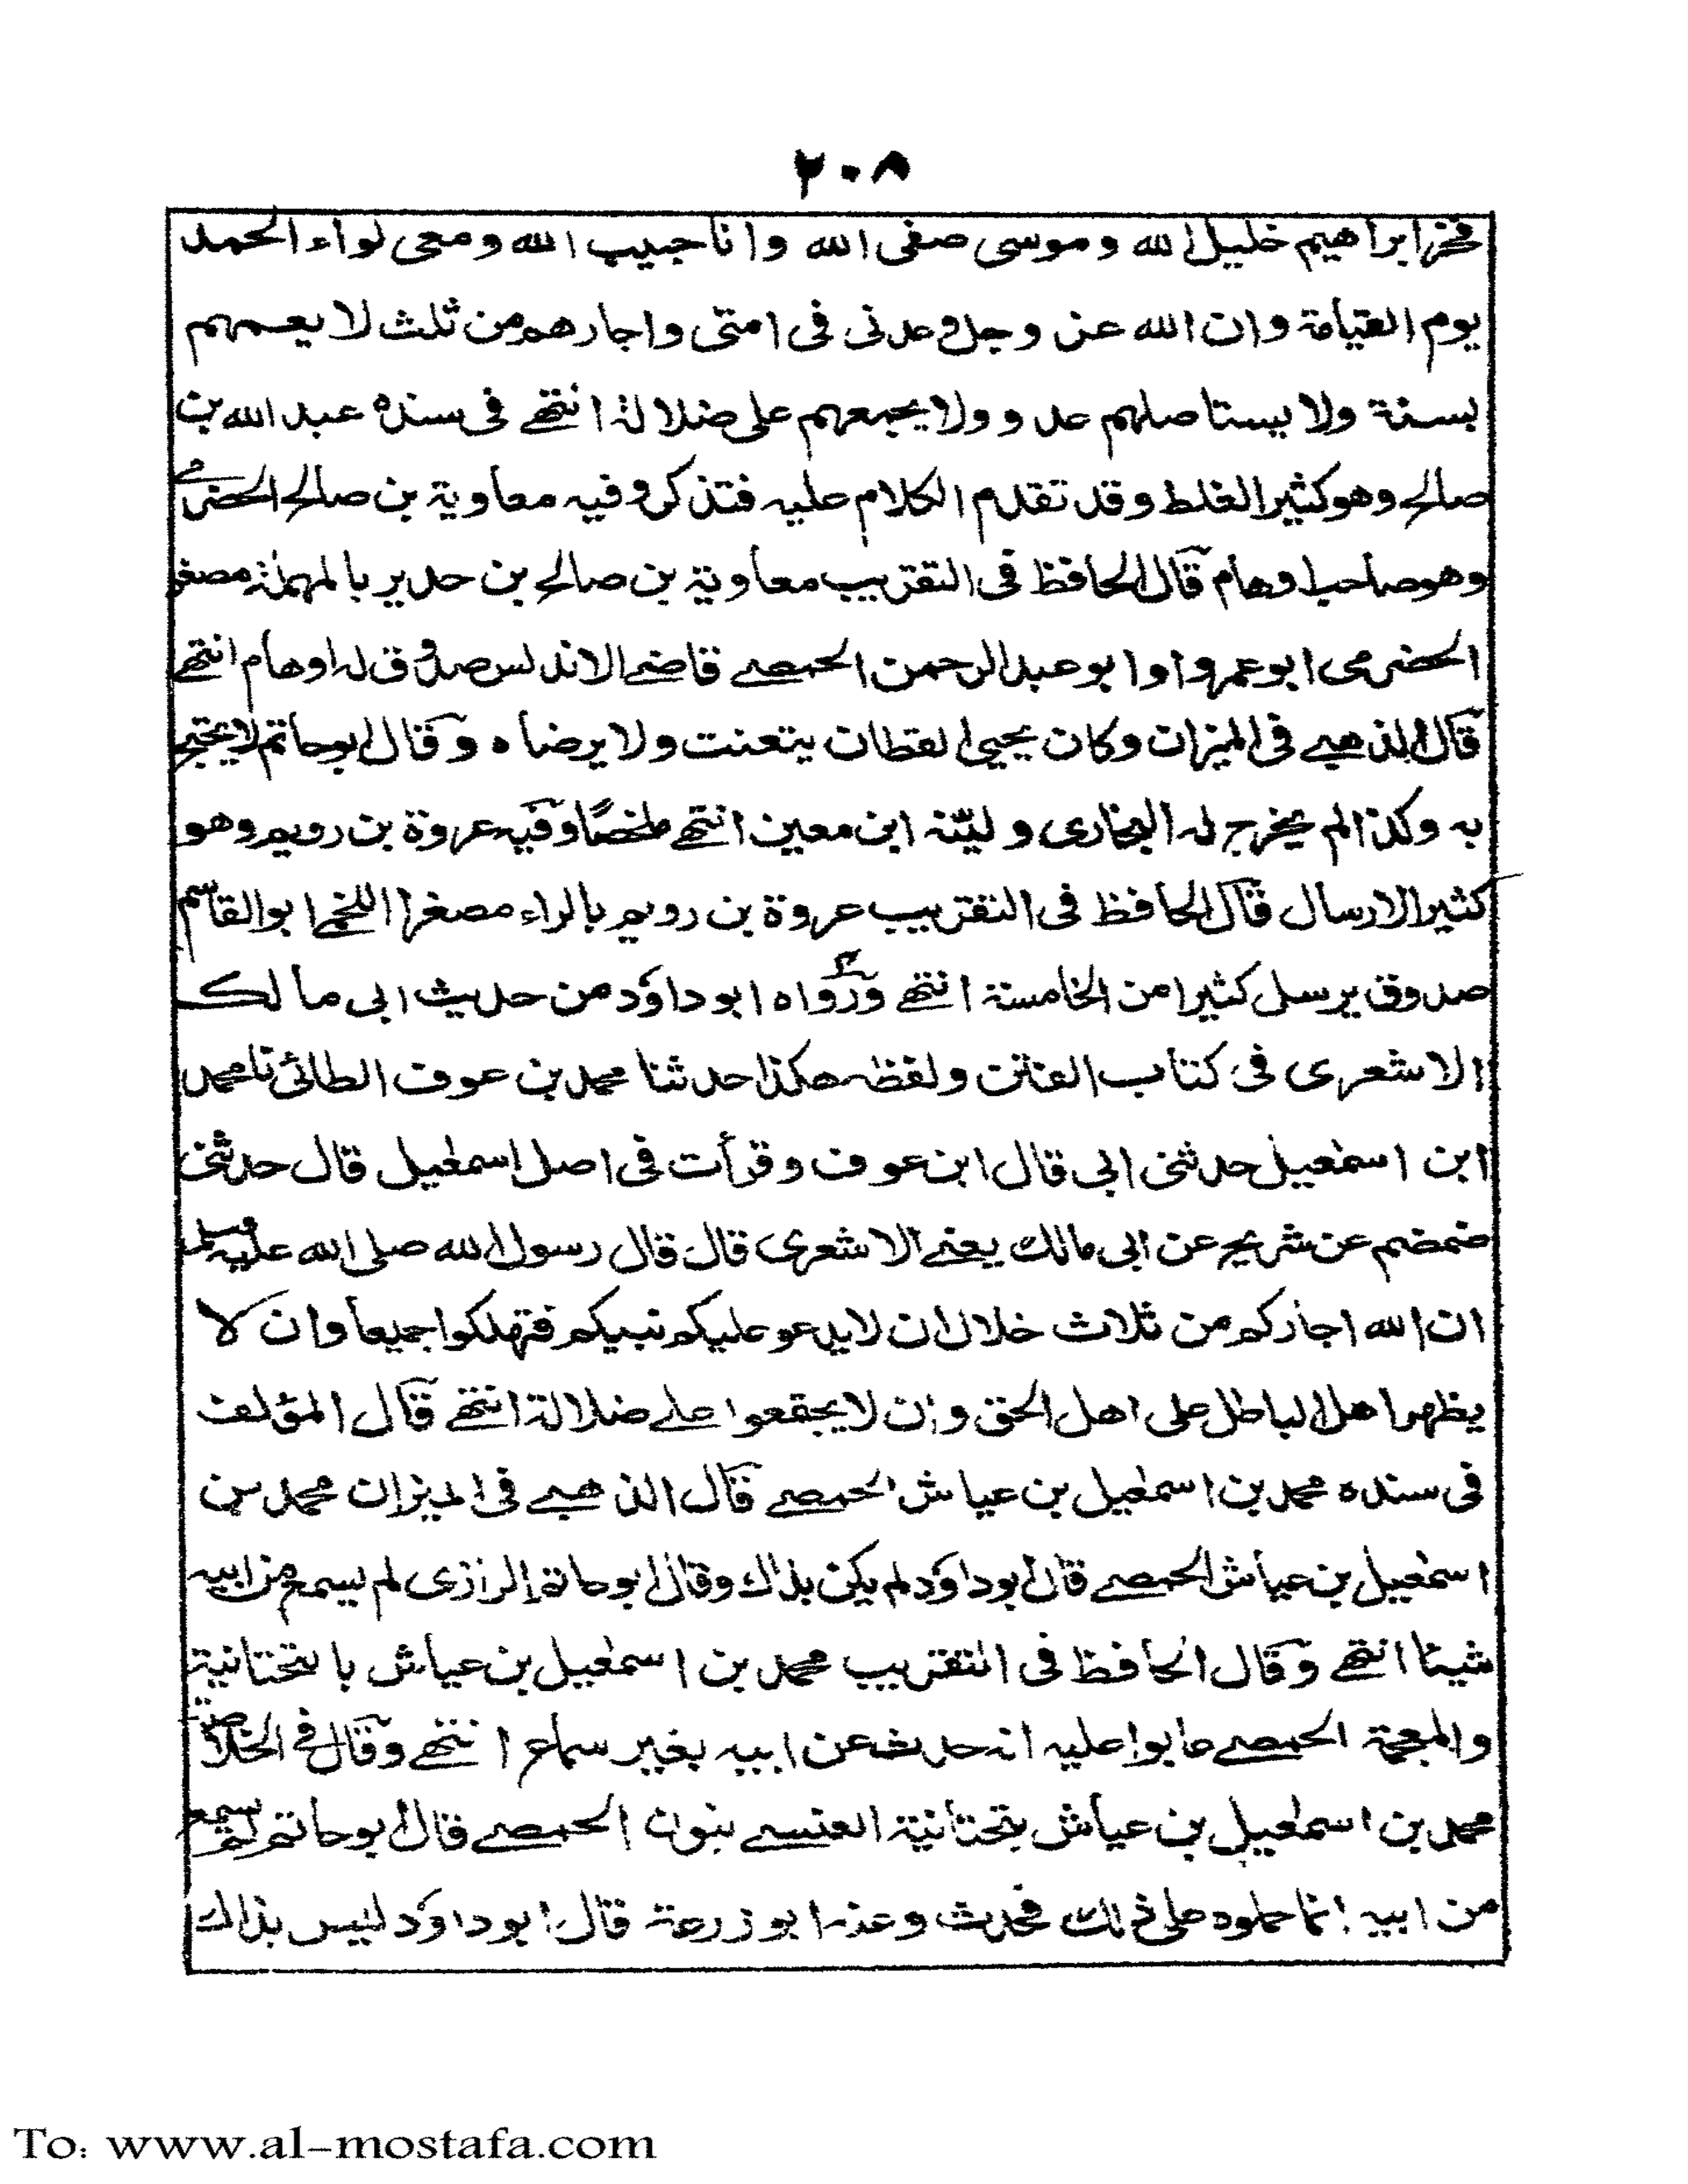 ٢٠٨
فخر ابراهيم خليل الله و موسى صفى الله و انا حبيب الله و معى لواء الحمد
يوم القيامة و ان الله عز و جل وعدنى فى امتى و اجارهم من ثلث لا يعمهم
بسنة ولا يستاصلهم عدو ولا يجمعهم على ضلالة انتهے فى سنده عبد الله بن
صالح وهو كثير الغلط و قد تقدم الكلام عليه فتذكر و فيه معاوية بن صالح الحضرمے
وهو صاحب اوهام قال الحافظ فى التقريب معاوية بن صالح بن حدير بالمهملة مصغر
الحضرمى ابو عمرو او ابو عبد الرحمن الحمصے قاضے الاندلس صدوق له اوهام انتهے
قال الذهبے فى الميزان و كان يحيى القطان يتعنت ولا يرضاه و قال ابو حاتم لا يحتج
به و كذا لم يخرج له البخارى و ليّنه ابن معين انتهے ملخصًا و فيه عروة بن رويم وهو
كثير الارسال قال الحافظ فى التقريب عروة بن رويم بالراء مصغرا اللخمے ابو القاسم
صدوق يرسل كثيرا من الخامسة انتهے و رواه ابو داؤد من حديث ابى مالك
الاشعرى فى كتاب الفتن و لفظه هكذا حدثنا محمد بن عوف الطائى نا محمد
ابن اسمٰعيل حدثنى ابى قال ابن عوف و قرأت فى اصل اسمٰعيل قال حدثنى
ضمضم عن شريح عن ابى مالك يعنے الاشعرى قال قال رسول الله صلى الله عليه وسلم
ان الله اجاركم من ثلاث خلال ان لا يدعو عليكم نبيكم فتهلكوا جميعا و ان لا
يظهر اهل الباطل على اهل الحق و ان لا يجتمعوا علے ضلالة انتهے قال المؤلف
فى سنده محمد بن اسمٰعيل بن عياش الحمصے قال الذهبے فى الميزان محمد بن
اسمٰعيل بن عياش الحمصے قال ابو داؤد لم يكن بذاك و قال ابو حاتم الرازى لم يسمع من ابيه
شيئا انتهے و قال الحافظ فى التقريب محمد بن اسمٰعيل بن عياش بالتحتانية
والمعجمة الحمصے عابوا عليه انه حدث عن ابيه بغير سماع انتهے و قال فے الخلاصة
محمد بن اسمٰعيل بن عياش بتحتانية العنسے بنون الحمصے قال ابو حاتم لم يسمع
من ابيه انما حملوه على ذلك فحدث و عنه ابو زرعة قال ابو داؤد ليس بذاك
To: www.al-mostafa.com